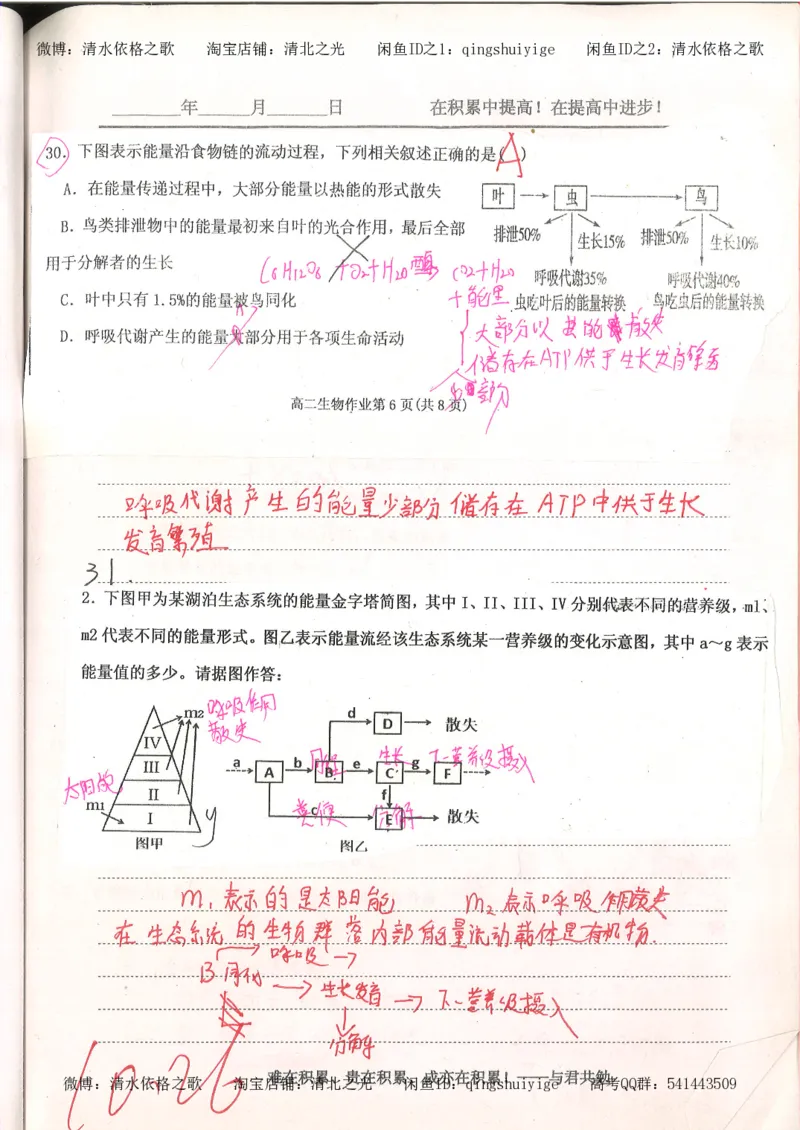 微博：清水依格之歌 淘宝店铺：清北之光 闲鱼ID之1：qingshuiyige 闲鱼ID之2：清水依格之歌
年 月 日 在积累中提高！在提高中进步！
30．下图表示能量沿食物链的流动过程，下列相关叙述正确的是（A）
A．在能量传递过程中，大部分能量以热能的形式散失
叶 虫 鸟
B．鸟类排泄物中的能量最初来自叶的光合作用，最后全部
排泄50% 生长15% 排泄50% 生长10%
用于分解者的生长
C6H12O6+O2+H2O 酶 CO2+H2O
+能量
呼吸代谢35% 呼吸代谢40%
C．叶中只有 1.5%的能量被鸟同化
虫吃叶后的能量转换 鸟吃虫后的能量转换
大部分以 散失
D．呼吸代谢产生的能量大部分用于各项生命活动
储存在ATP供于生长发育繁殖
部分
高二生物作业第 6 页(共 8 页)
呼吸代谢产生的能量少部分储存在ATP中供于生长
发育繁殖
31.
2．下图甲为某湖泊生态系统的能量金字塔简图，其中 I、II、III、IV 分别代表不同的营养级，m1、
m2 代表不同的能量形式。图乙表示能量流经该生态系统某一营养级的变化示意图，其中 a～g 表示
能量值的多少。请据图作答：
m2 呼吸作用
散失
d D 散失
IV
III
II
I
太阳能
m1
a A b B 同化 e 生长 C g 下一营养级摄入 F
f
c 粪便 分解 E 散失
图甲 图乙
m1表示的是太阳能 m2表示呼吸作用散失
在生态系统的生物群落内部能量流动载体是有机物.
呼吸
B同化
生长发育 下一营养级摄入
分解
10.26
难在积累，贵在积累，成亦在积累！——与君共勉
微博：清水依格之歌 淘宝店铺：清北之光 闲鱼ID：qingshuiyige 高考QQ群：541443509